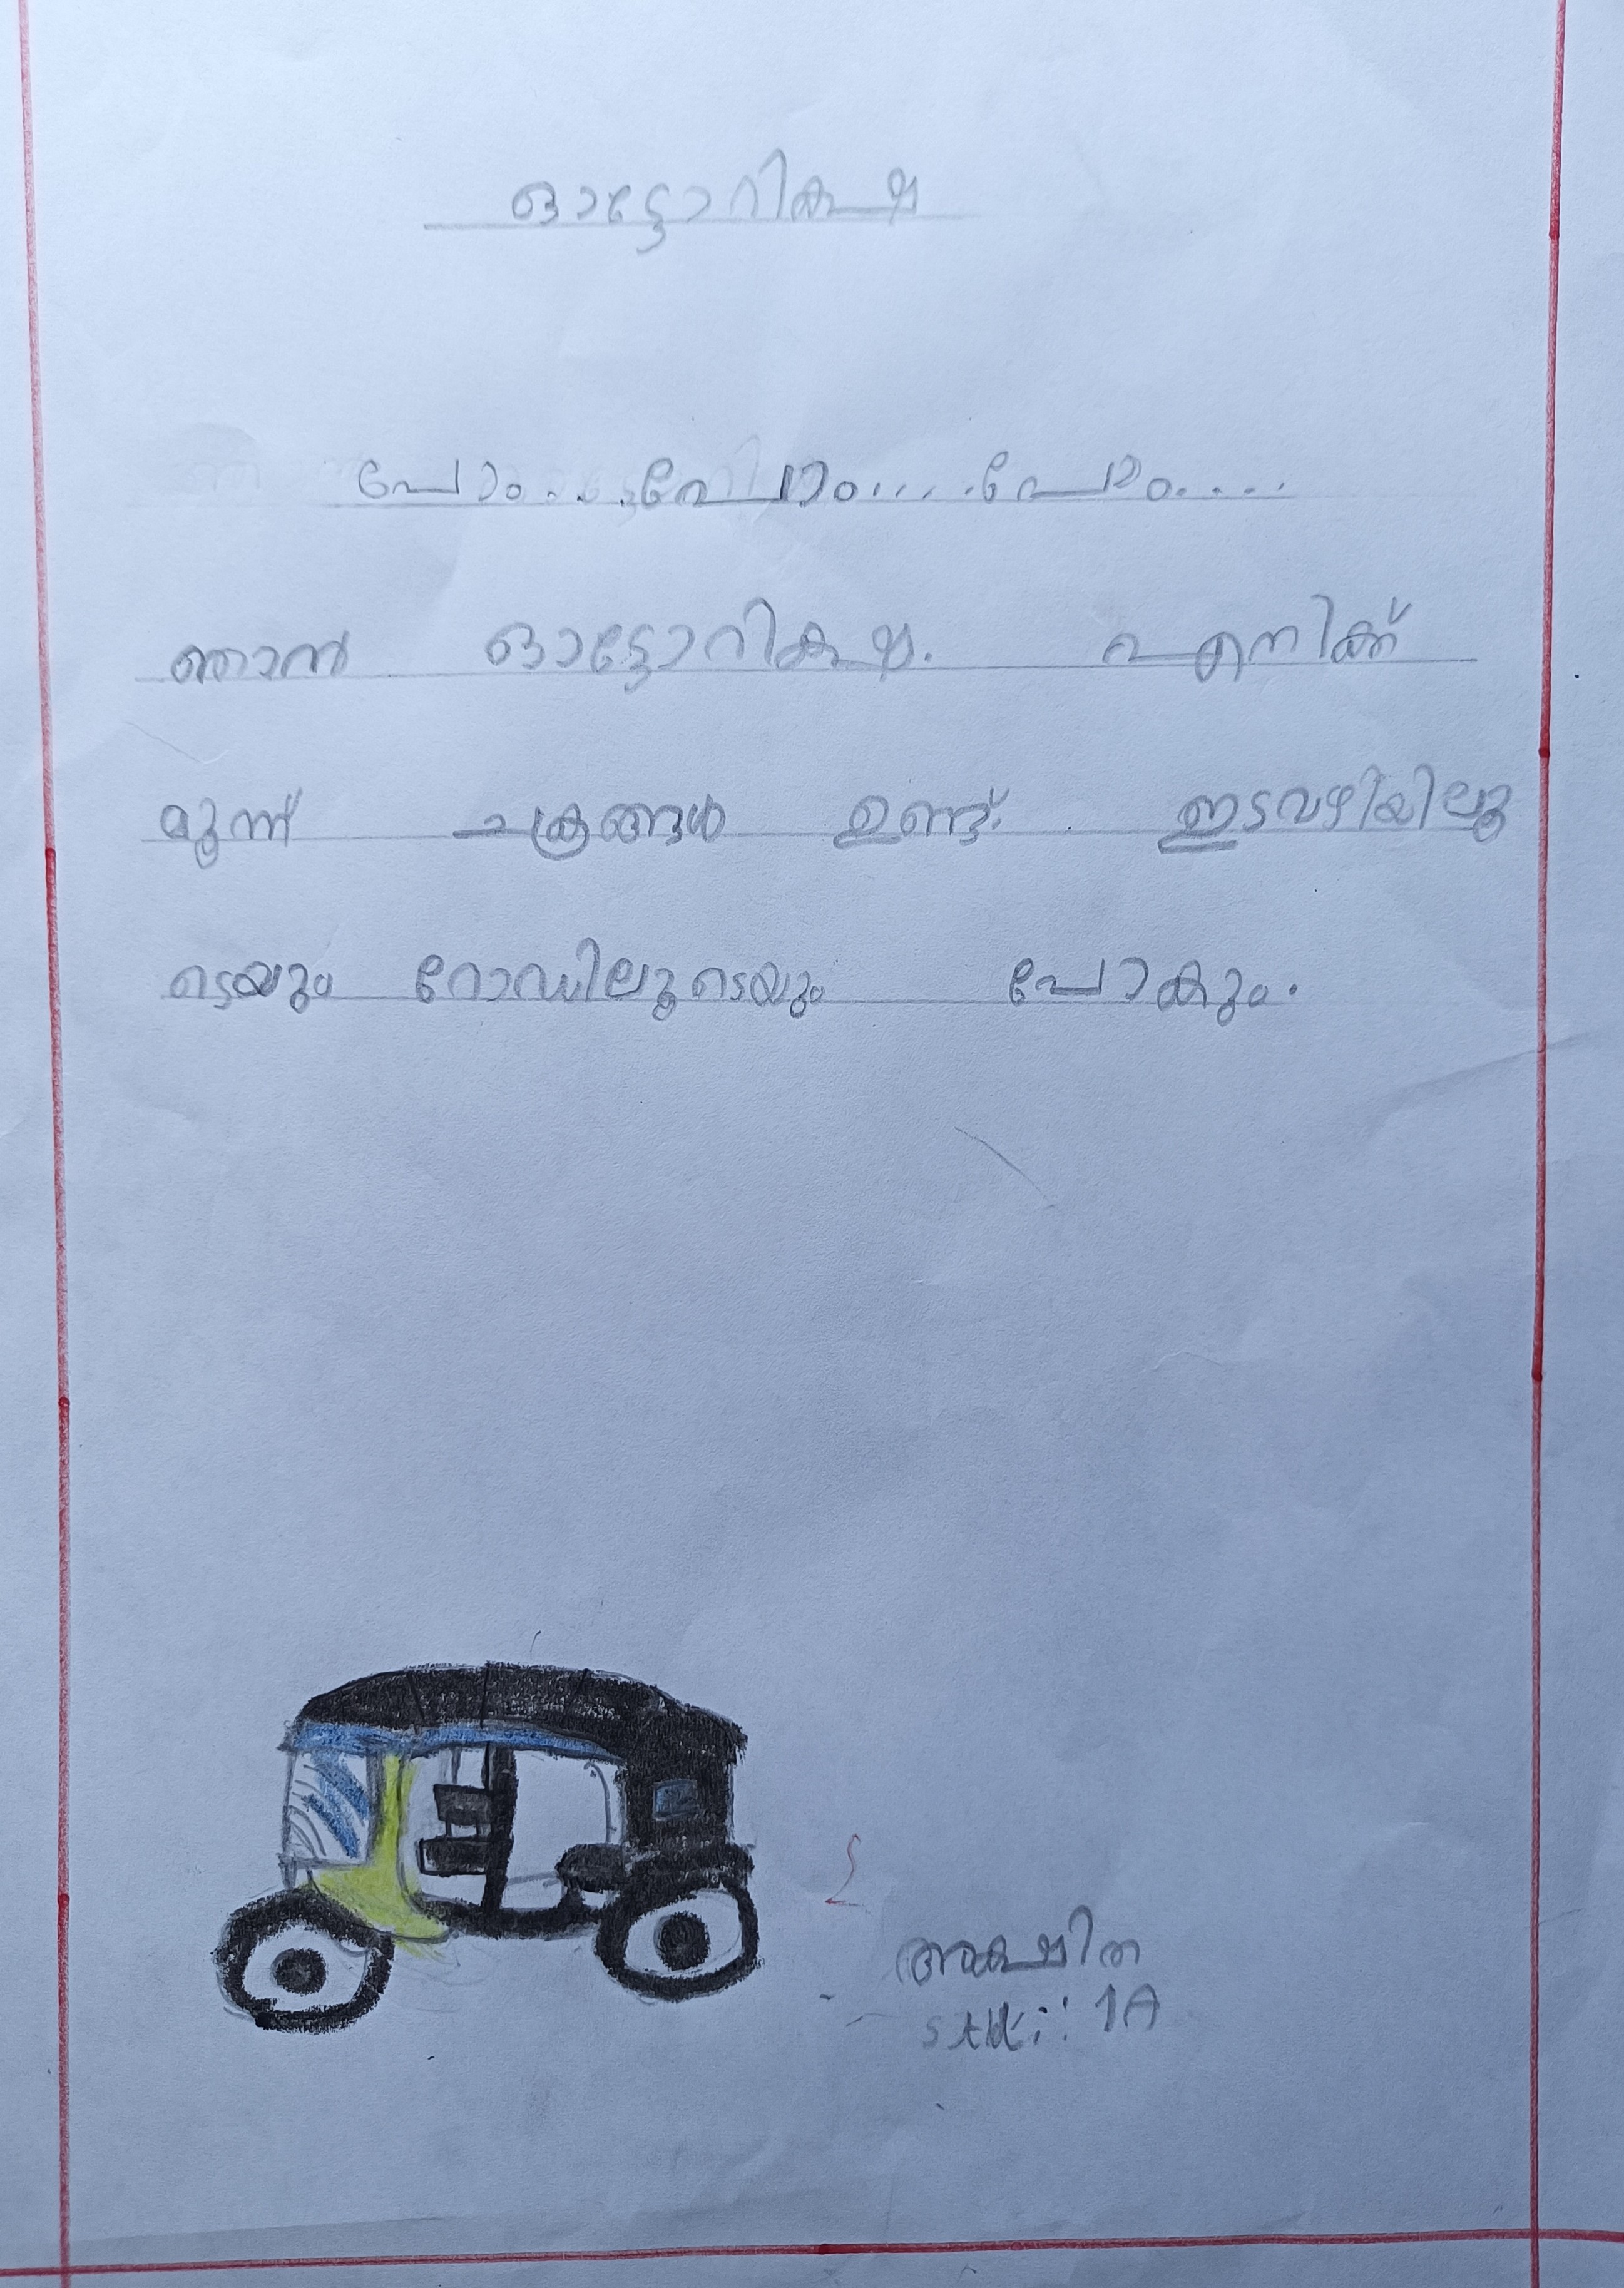 ഓട്ടോറിക്ഷ
പോം....പോം.....പോം....
ഞാൻ ഓട്ടോറിക്ഷ. എനിക്ക്
മൂന്ന് ചക്രങ്ങൾ ഉണ്ട്. ഇടവഴിയിലൂ
ടെയും റോഡിലൂടെയും പോകും.
അക്ഷിത
1A